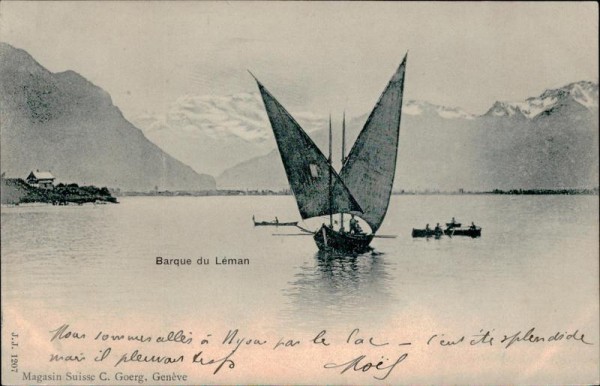 Barque du Léman
Nous sommes allés à Nyon par le lac – c'eut été splendide
mais il pleuvait trop Noël
J.J. 1207
Magasin Suisse C. Goerg, Genève